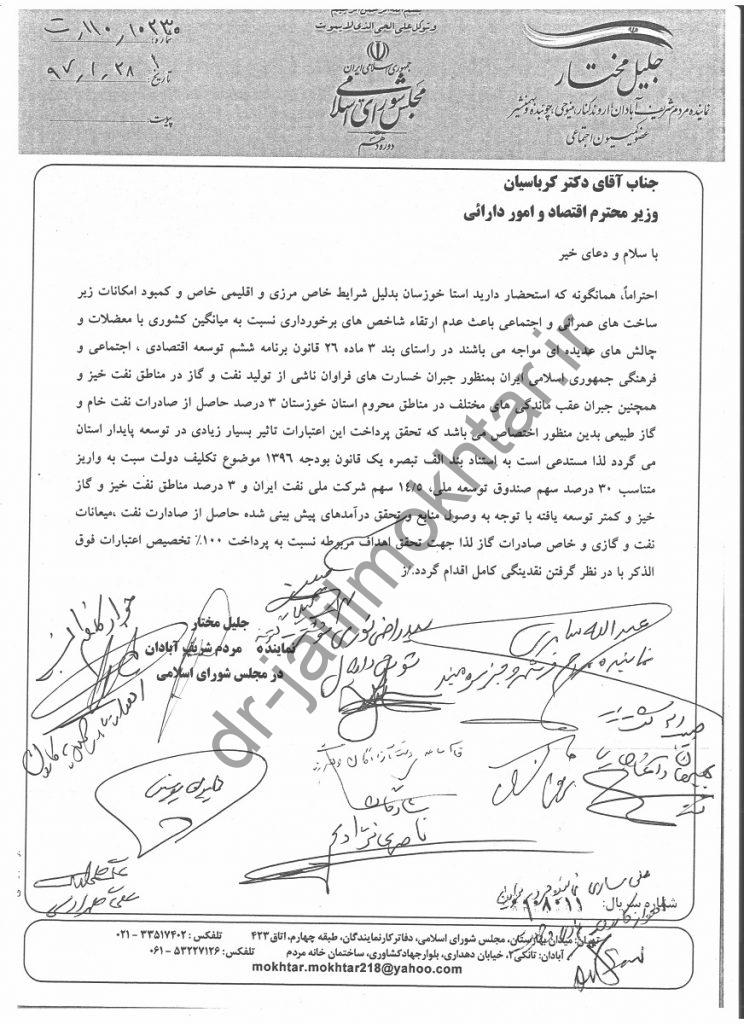 وتوکل علی الحی الذی لایموت
جمهوری اسلامی ایران
مجلس شورای اسلامی
دوره دهم
شماره: ۱۱۰/۱۰۲۳۵/ت
تاریخ: ۹۷/۱/۲۸
پیوست:
جلیل مختار
نماینده مردم شریف آبادان، اروندکنار، منیوحی، چوئبده و بهمنشیر
عضو کمیسیون اجتماعی
جناب آقای دکتر کرباسیان
وزیر محترم اقتصاد و امور دارائی
با سلام و دعای خیر
احتراماً، همانگونه که استحضار دارید استا خوزسان بدلیل شرایط خاص مرزی و اقلیمی خاص و کمبود امکانات زیر
ساخت های عمرانی و اجتماعی باعث عدم ارتقاء شاخص های برخورداری نسبت به میانگین کشوری با معضلات و
چالش های عدیده ای مواجه می باشند در راستای بند ۳ ماده ۲۶ قانون برنامه ششم توسعه اقتصادی ، اجتماعی و
فرهنگی جمهوری اسلامی ایران بمنظور جبران خسارت های فراوان ناشی از تولید نفت و گاز در مناطق نفت خیز و
همچنین جبران عقب ماندگی های مختلف در مناطق محروم استان خوزستان ۳ درصد حاصل از صادرات نفت خام و
گاز طبیعی بدین منظور اختصاص می باشد که تحقق پرداخت این اعتبارات تاثیر بسیار زیادی در توسعه پایدار استان
می گردد لذا مستدعی است به استناد بند الف تبصره یک قانون بودجه ۱۳۹۶ موضوع تکلیف دولت سبت به واریز
متناسب ۳۰ درصد سهم صندوق توسعه ملی، ۱۴/۵ سهم شرکت ملی نفت ایران و ۳ درصد مناطق نفت خیز و گاز
خیز و کمتر توسعه یافته با توجه به وصول منابع و تحقق درآمدهای پیش بینی شده حاصل از صادارت نفت ،میعانات
نفت و گازی و خاص صادرات گاز لذا جهت تحقق اهداف مربوطه نسبت به پرداخت ۱۰۰٪ تخصیص اعتبارات فوق
الذکر با در نظر گرفتن نقدینگی کامل اقدام گردد./ز
جلیل مختار
نماینده مردم شریف آبادان
در مجلس شورای اسلامی
عبدالله سامری
شادگان
ناصری نژاد
علی ساری
شماره سریال: ۱۰۸۰۱۱
تهران: میدان بهارستان، مجلس شورای اسلامی، دفاتر کار نمایندگان، طبقه چهارم، اتاق ۴۲۳ تلفکس: ۳۳۵۱۷۴۰۲ - ۰۲۱
آبادان: تانکی۲، خیابان دهداری، بلوار جهادکشاورزی، ساختمان خانه مردم تلفکس: ۵۳۲۲۷۱۲۶ - ۰۶۱
mokhtar.mokhtar218@yahoo.com
dr-jalilmokhtar.ir